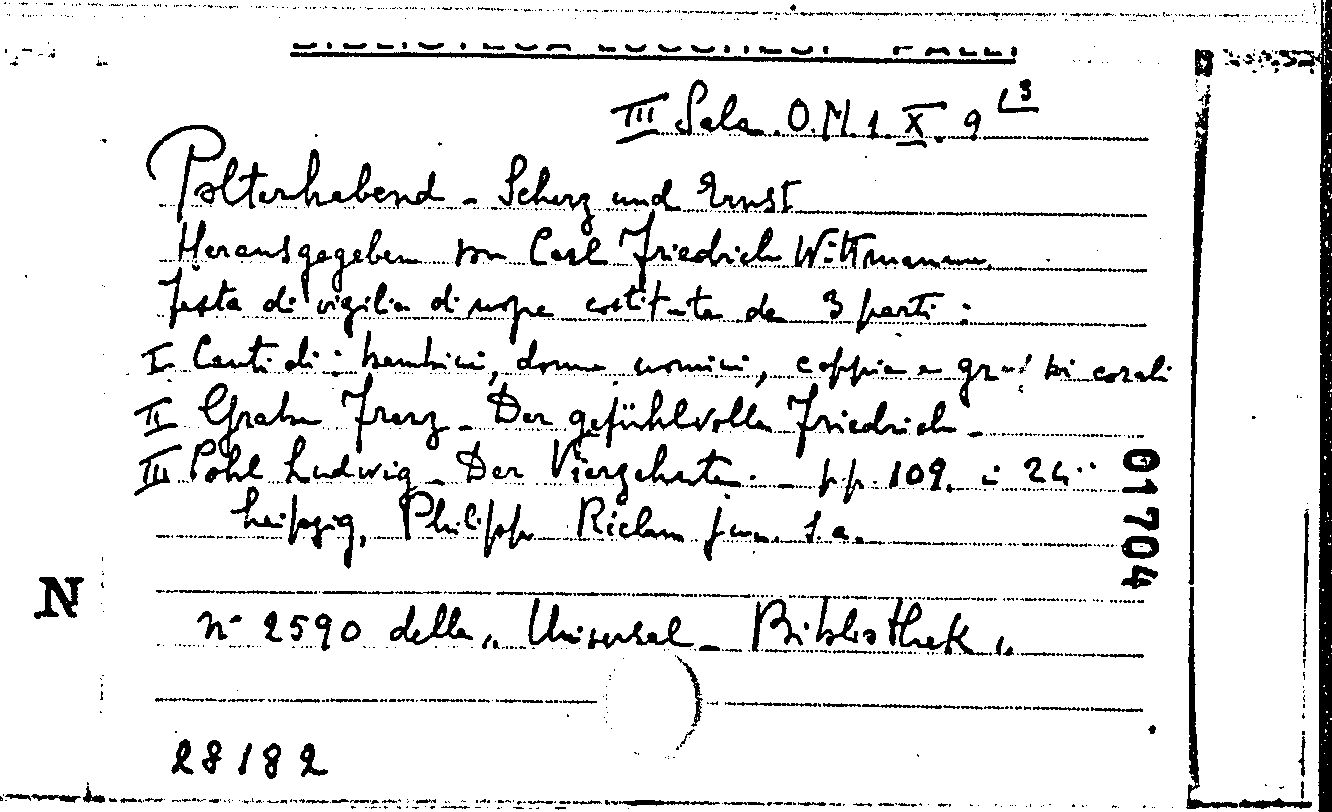 BIBLIOTECA LUCCHESI - PALLI
III Sala. O.M. 1. X. 9 13
Polterhabend - Scherz und Ernst
Herausgegeben von Carl Friedrich Wittmann.
Festa di vigilia di nozze costituita da 3 parti:
I Canti di: bambini, donne uomini, coppie e gruppi corali
II Graben Franz - Der gefühlvolle Friedrich -
III Pohl Ludwig - Der Vierzehnte. - pp. 109. in 24°
Leipzig, Philipp Riclam jun. s.a.
01704
N
n° 2590 della „ Universal - Bibliothek „
28182